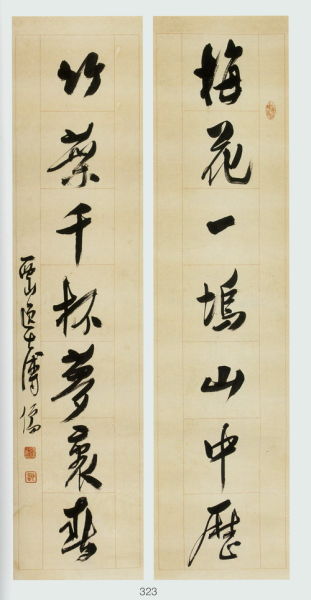 梅花一塢山中歷
竹葉千杯夢裏春
西山逸士溥儒
323